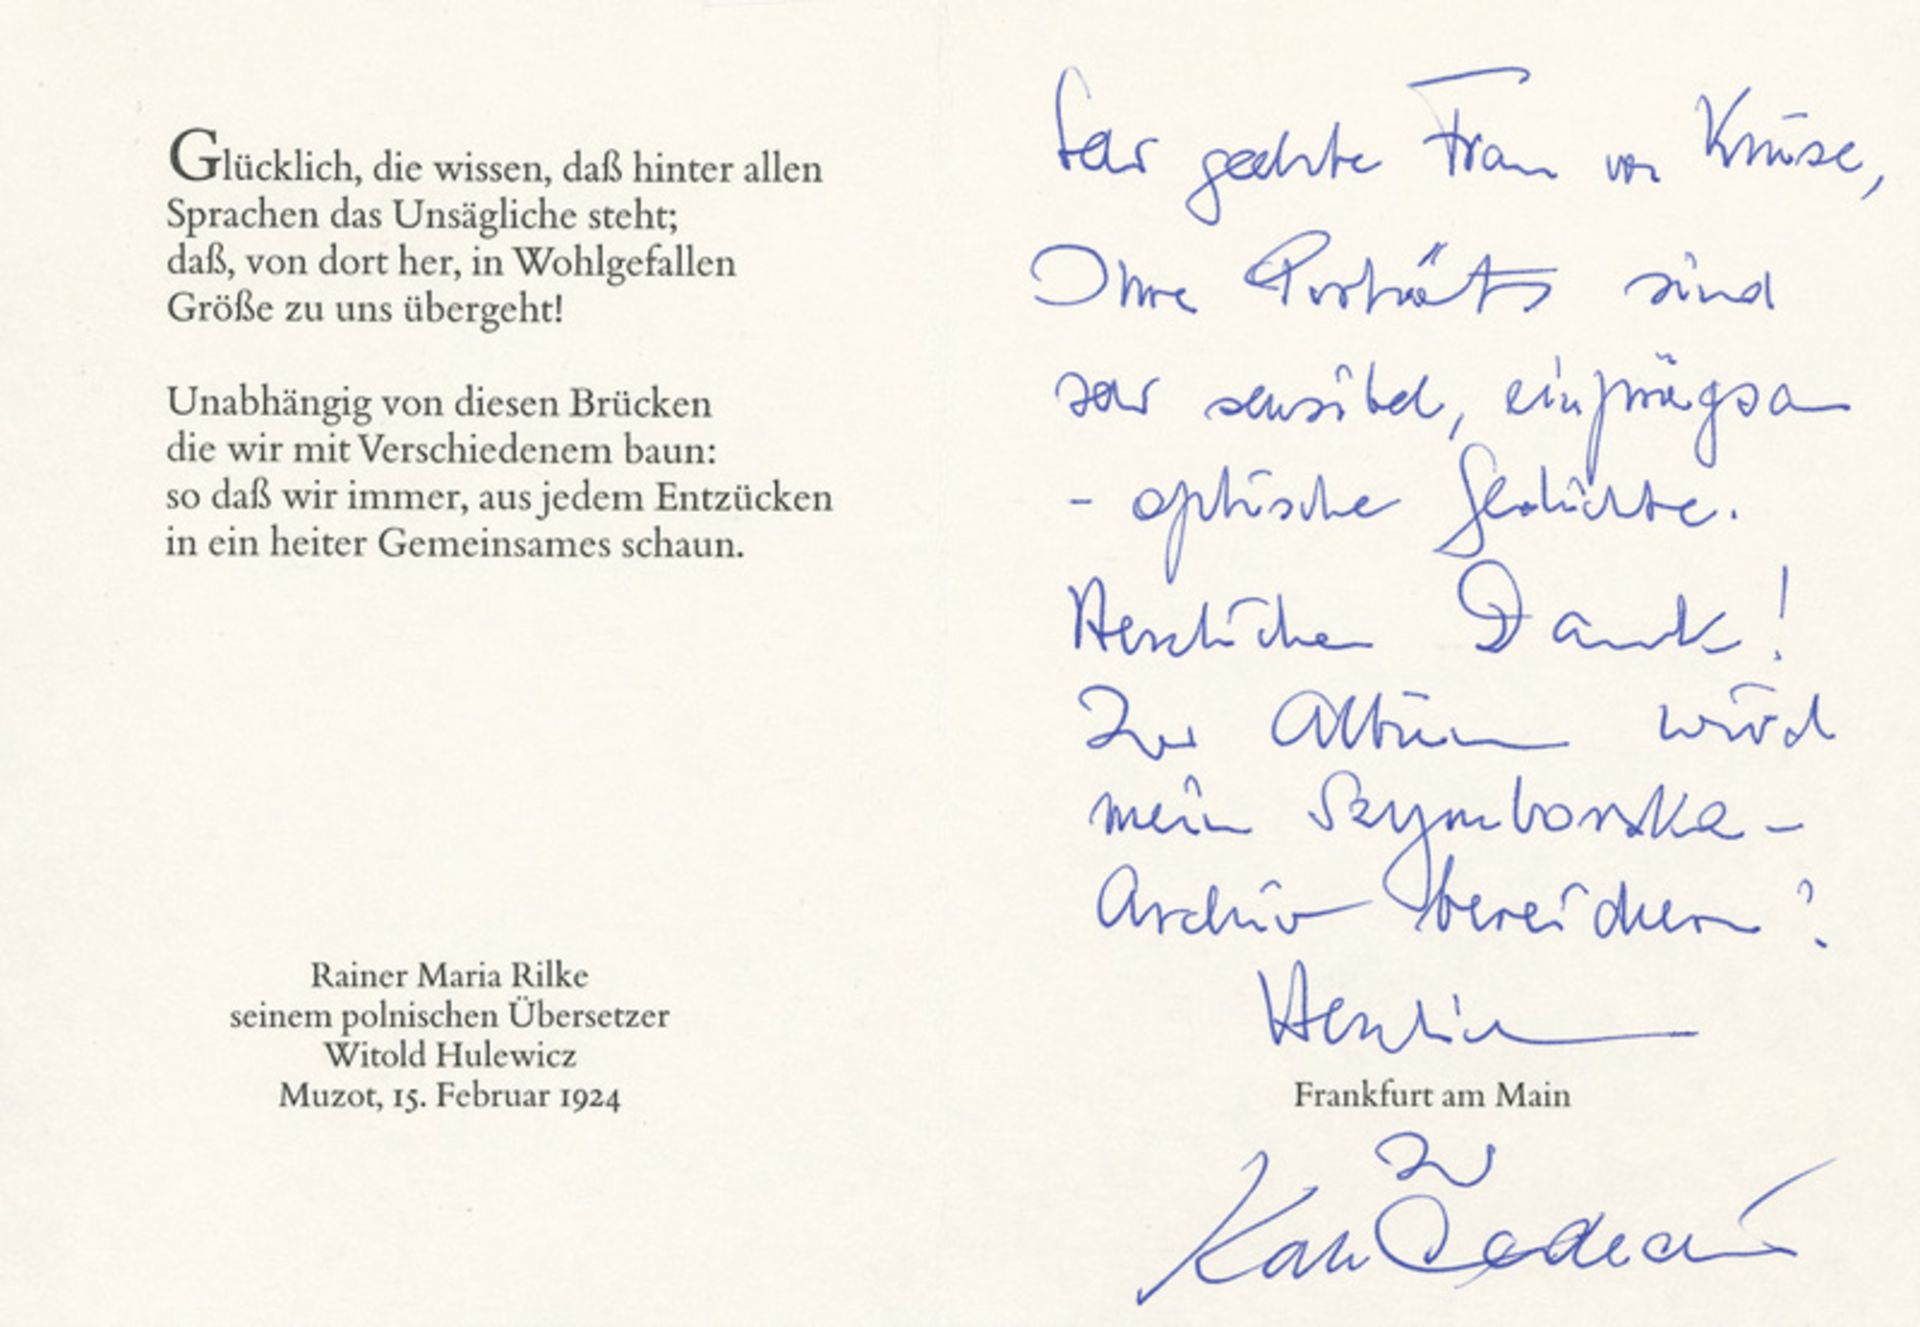 Glücklich, die wissen, daß hinter allen
Sprachen das Unsägliche steht;
daß, von dort her, in Wohlgefallen
Größe zu uns übergeht!
Unabhängig von diesen Brücken
die wir mit Verschiedenem baun:
so daß wir immer, aus jedem Entzücken
in ein heiter Gemeinsames schaun.
Rainer Maria Rilke
seinem polnischen Übersetzer
Witold Hulewicz
Muzot, 15. Februar 1924
Sehr geehrte Frau von Kruse,
Ihre Porträts sind
sehr sensibel, einprägsam
- optische Gedichte.
Herzlichen Dank!
Ihr Album wird
mein Szymborska-
Archiv bereichern!
Herzlich
Frankfurt am Main
Ihr
Karl Dedecius